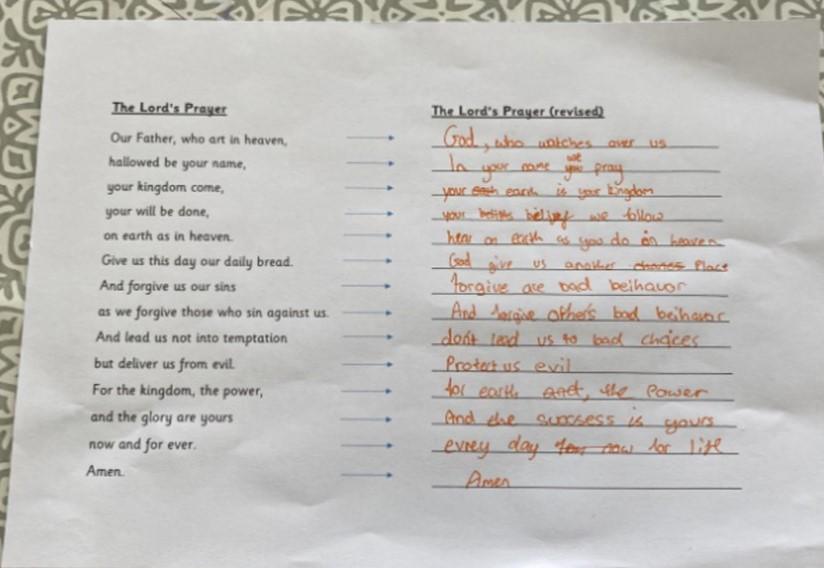 The Lord's Prayer
The Lord's Prayer (revised)
Our Father, who art in heaven,
God, who watches over us
hallowed be your name,
In your name we pray
your kingdom come,
your earth is your kingdom
your will be done,
your belief we follow
on earth as in heaven.
hear on earth as you do on heaven
Give us this day our daily bread.
God give us another Place
And forgive us our sins
forgive are bad beihavor
as we forgive those who sin against us.
And forgive others bad beihavor
And lead us not into temptation
don't lead us to bad choices
but deliver us from evil.
Protect us evil
For the kingdom, the power,
for earth, the Power
and the glory are yours
And the success is yours
now and for ever.
evrey day now for life
Amen.
Amen